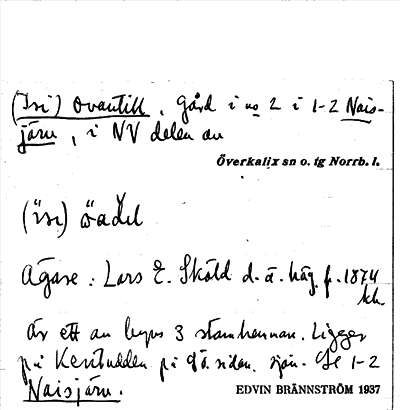 (Isi) Ovantill, gård i no 2 i 1-2 Nais-
järn, i NV delen av
Överkalix sn o. tg Norrb. l.
Ägare: Lars E. Sköld d. ä. häg. f. 1874
Är ett av byns 3 stamhemman. Ligger
på sidan. sjön. Se 1-2
Naisjärn.
EDVIN BRÄNNSTRÖM 1937